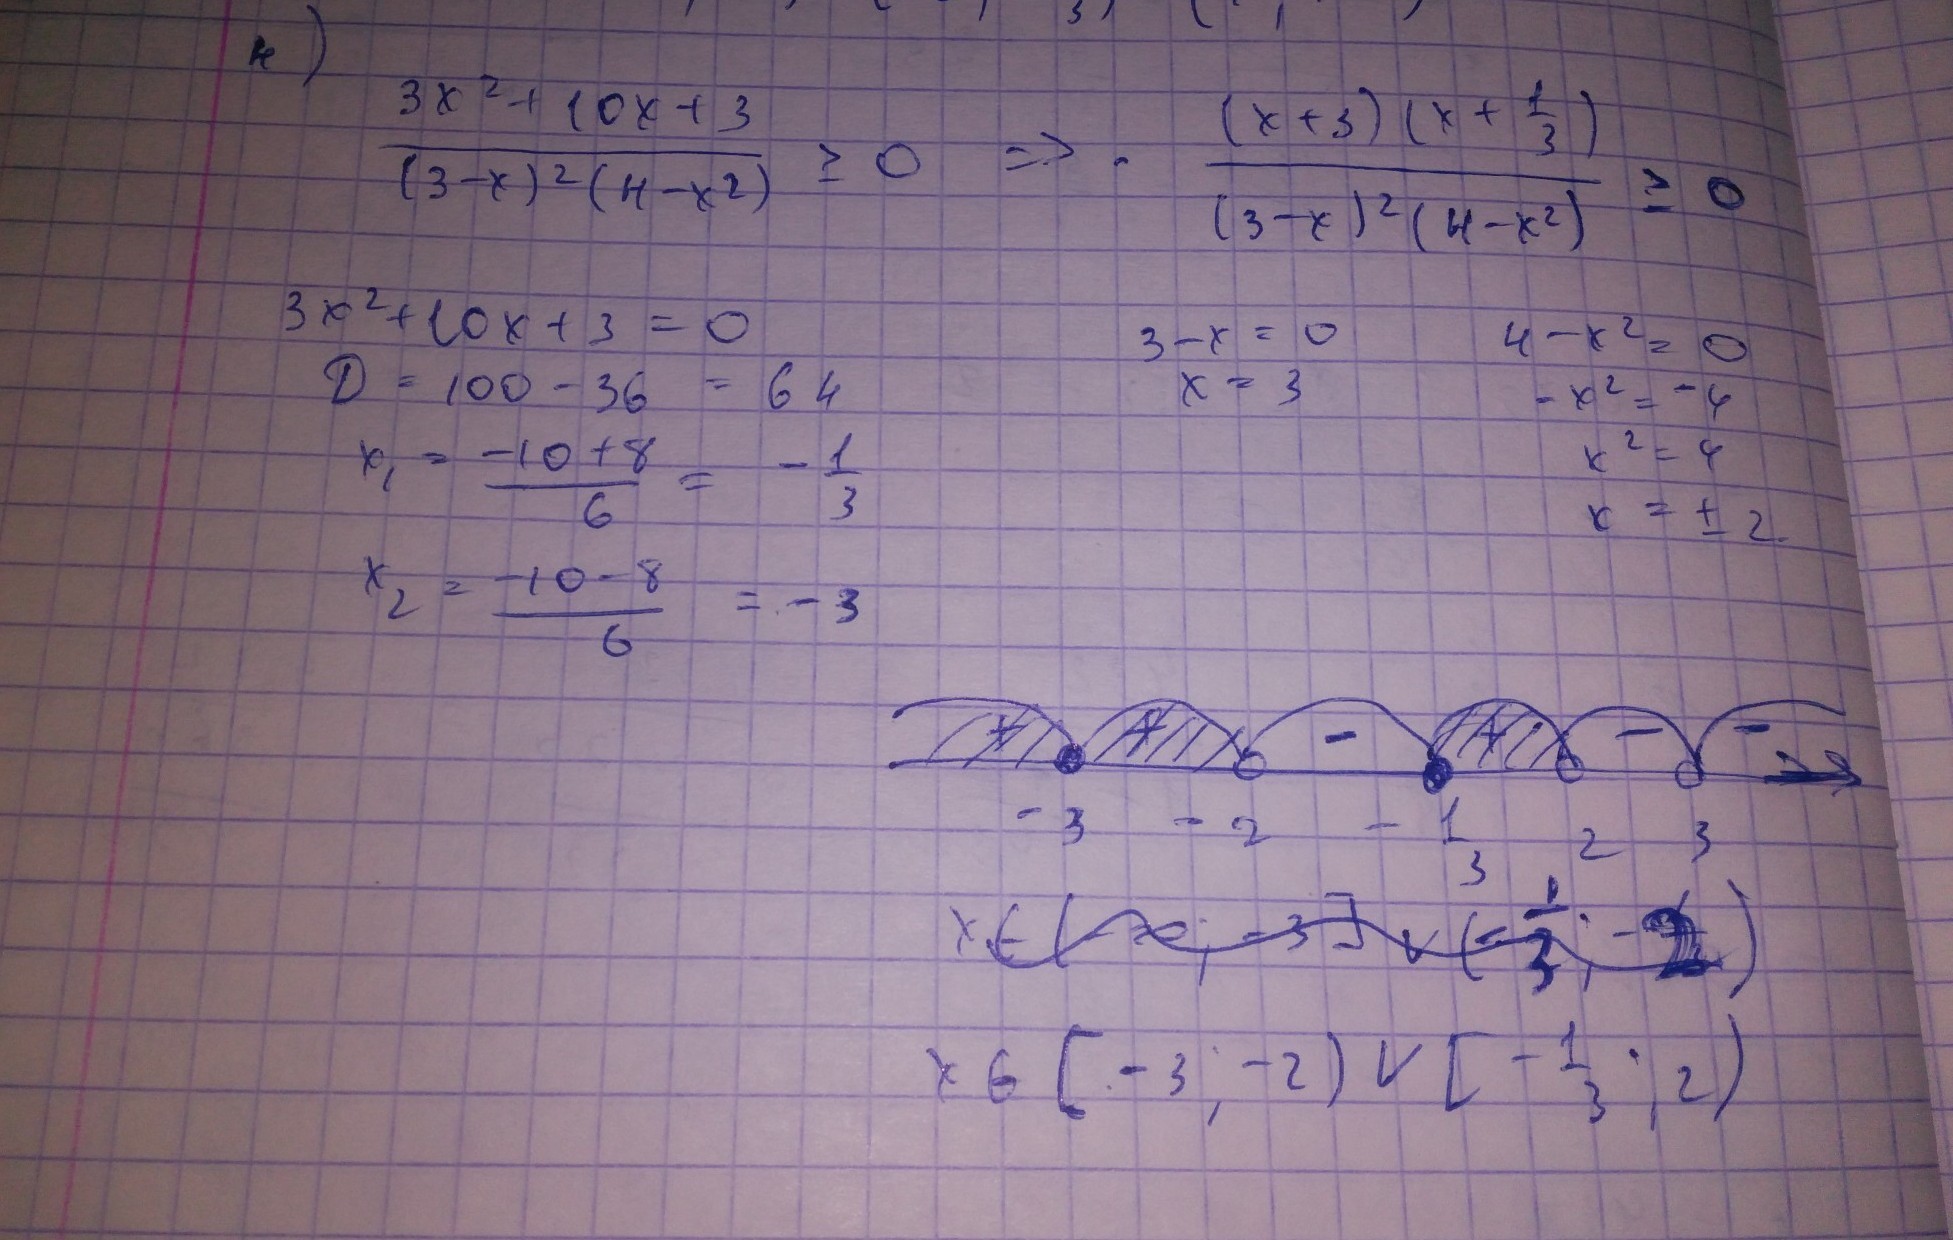 4)
3x²+10x+3 / (3-x)²(4-x²) ≥ 0 => (x+3)(x+1/3) / (3-x)²(4-x²) ≥ 0
3x²+10x+3=0
D = 100-36 = 64
x₁ = -10+8 / 6 = -1/3
x₂ = -10-8 / 6 = -3
3-x=0
x=3
4-x²=0
-x²=-4
x²=4
x=±2
+ + - + - -
-3 -2 -1/3 2 3
x∈[-3;-2)∨[-1/3;2)